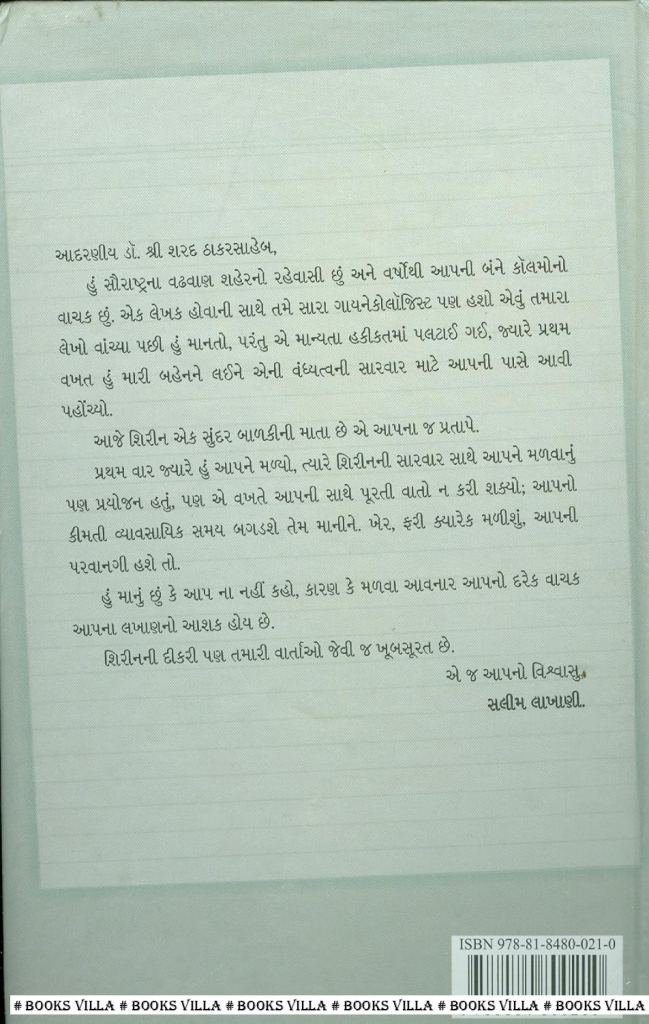 આદરણીય ડૉ. શ્રી શરદ ઠાકરસાહેબ,
હું સૌરાષ્ટ્રના વઢવાણ શહેરનો રહેવાસી છું અને વર્ષોથી આપની બંને કૉલમોનો
વાચક છું. એક લેખક હોવાની સાથે તમે સારા ગાયનેકોલૉજિસ્ટ પણ હશો એવું તમારા
લેખો વાંચ્યા પછી હું માનતો, પરંતુ એ માન્યતા હકીકતમાં પલટાઈ ગઈ, જ્યારે પ્રથમ
વખત હું મારી બહેનને લઈને એની વંધ્યત્વની સારવાર માટે આપની પાસે આવી
પહોંચ્યો.
આજે શિરીન એક સુંદર બાળકીની માતા છે એ આપના જ પ્રતાપે.
પ્રથમ વાર જ્યારે હું આપને મળ્યો, ત્યારે શિરીનની સારવાર સાથે આપને મળવાનું
પણ પ્રયોજન હતું, પણ એ વખતે આપની સાથે પૂરતી વાતો ન કરી શક્યો; આપનો
કીમતી વ્યાવસાયિક સમય બગડશે તેમ માનીને. ખેર, ફરી ક્યારેક મળીશું, આપની
પરવાનગી હશે તો.
હું માનું છું કે આપ ના નહીં કહો, કારણ કે મળવા આવનાર આપનો દરેક વાચક
આપના લખાણનો આશક હોય છે.
શિરીનની દીકરી પણ તમારી વાર્તાઓ જેવી જ ખૂબસૂરત છે.
એ જ આપનો વિશ્વાસુ,
સલીમ લાખાણી.
ISBN 978-81-8480-021-0
# BOOKS VILLA # BOOKS VILLA # BOOKS VILLA # BOOKS VILLA # BOOKS VILLA # BOOKS VILLA